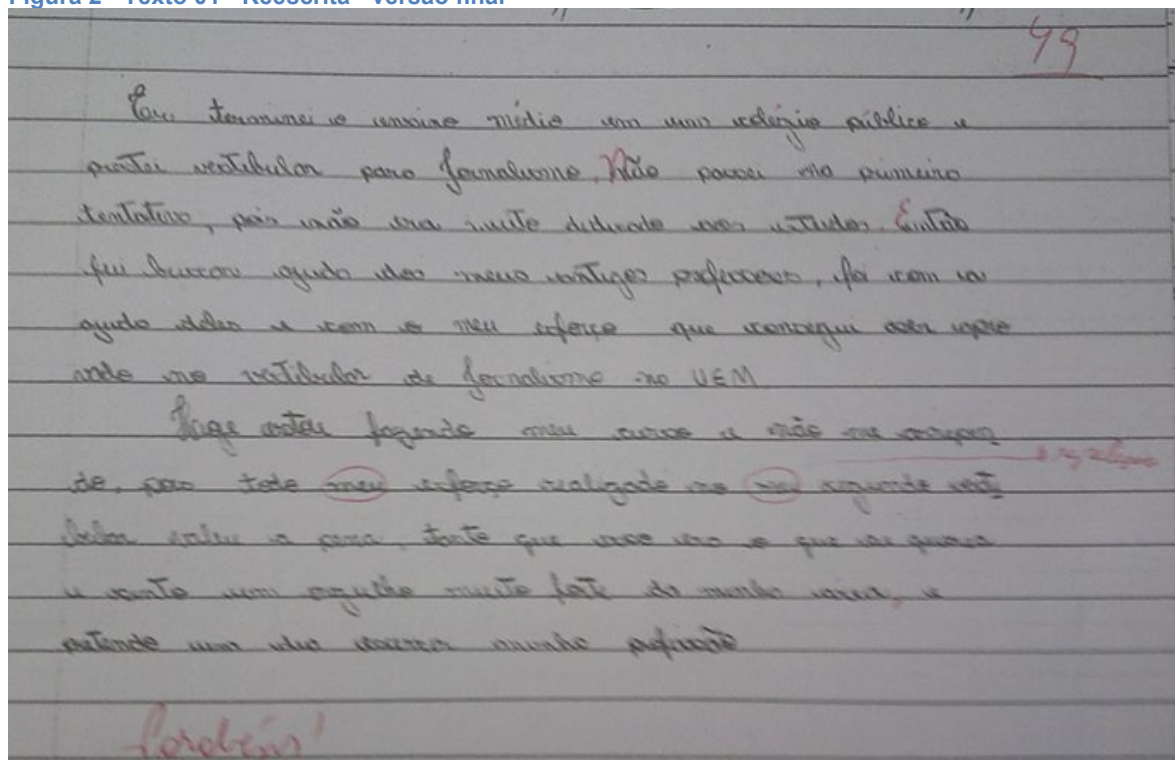 Figura 2 - Texto 01 - Reescrita - versão final
49
Eu terminei o ensino médio em um colégio público e
prestei vestibular para jornalismo. Não passei na primeira
tentativa, pois não era muito dedicado aos estudos. Então
fui buscar ajuda dos meus antigos professores, foi com a
ajuda deles e com o meu esforço que consegui ser apro
vado no vestibular de jornalismo na UEM
Hoje estou fazendo meu curso e não me arrepen
do, pois todo meu esforço realizado no meu segundo vesti
bular valeu a pena, tanto que era o que eu queria
e sinto um orgulho muito forte da minha, e
pretendo um dia exercer minha profissão
Parabéns!